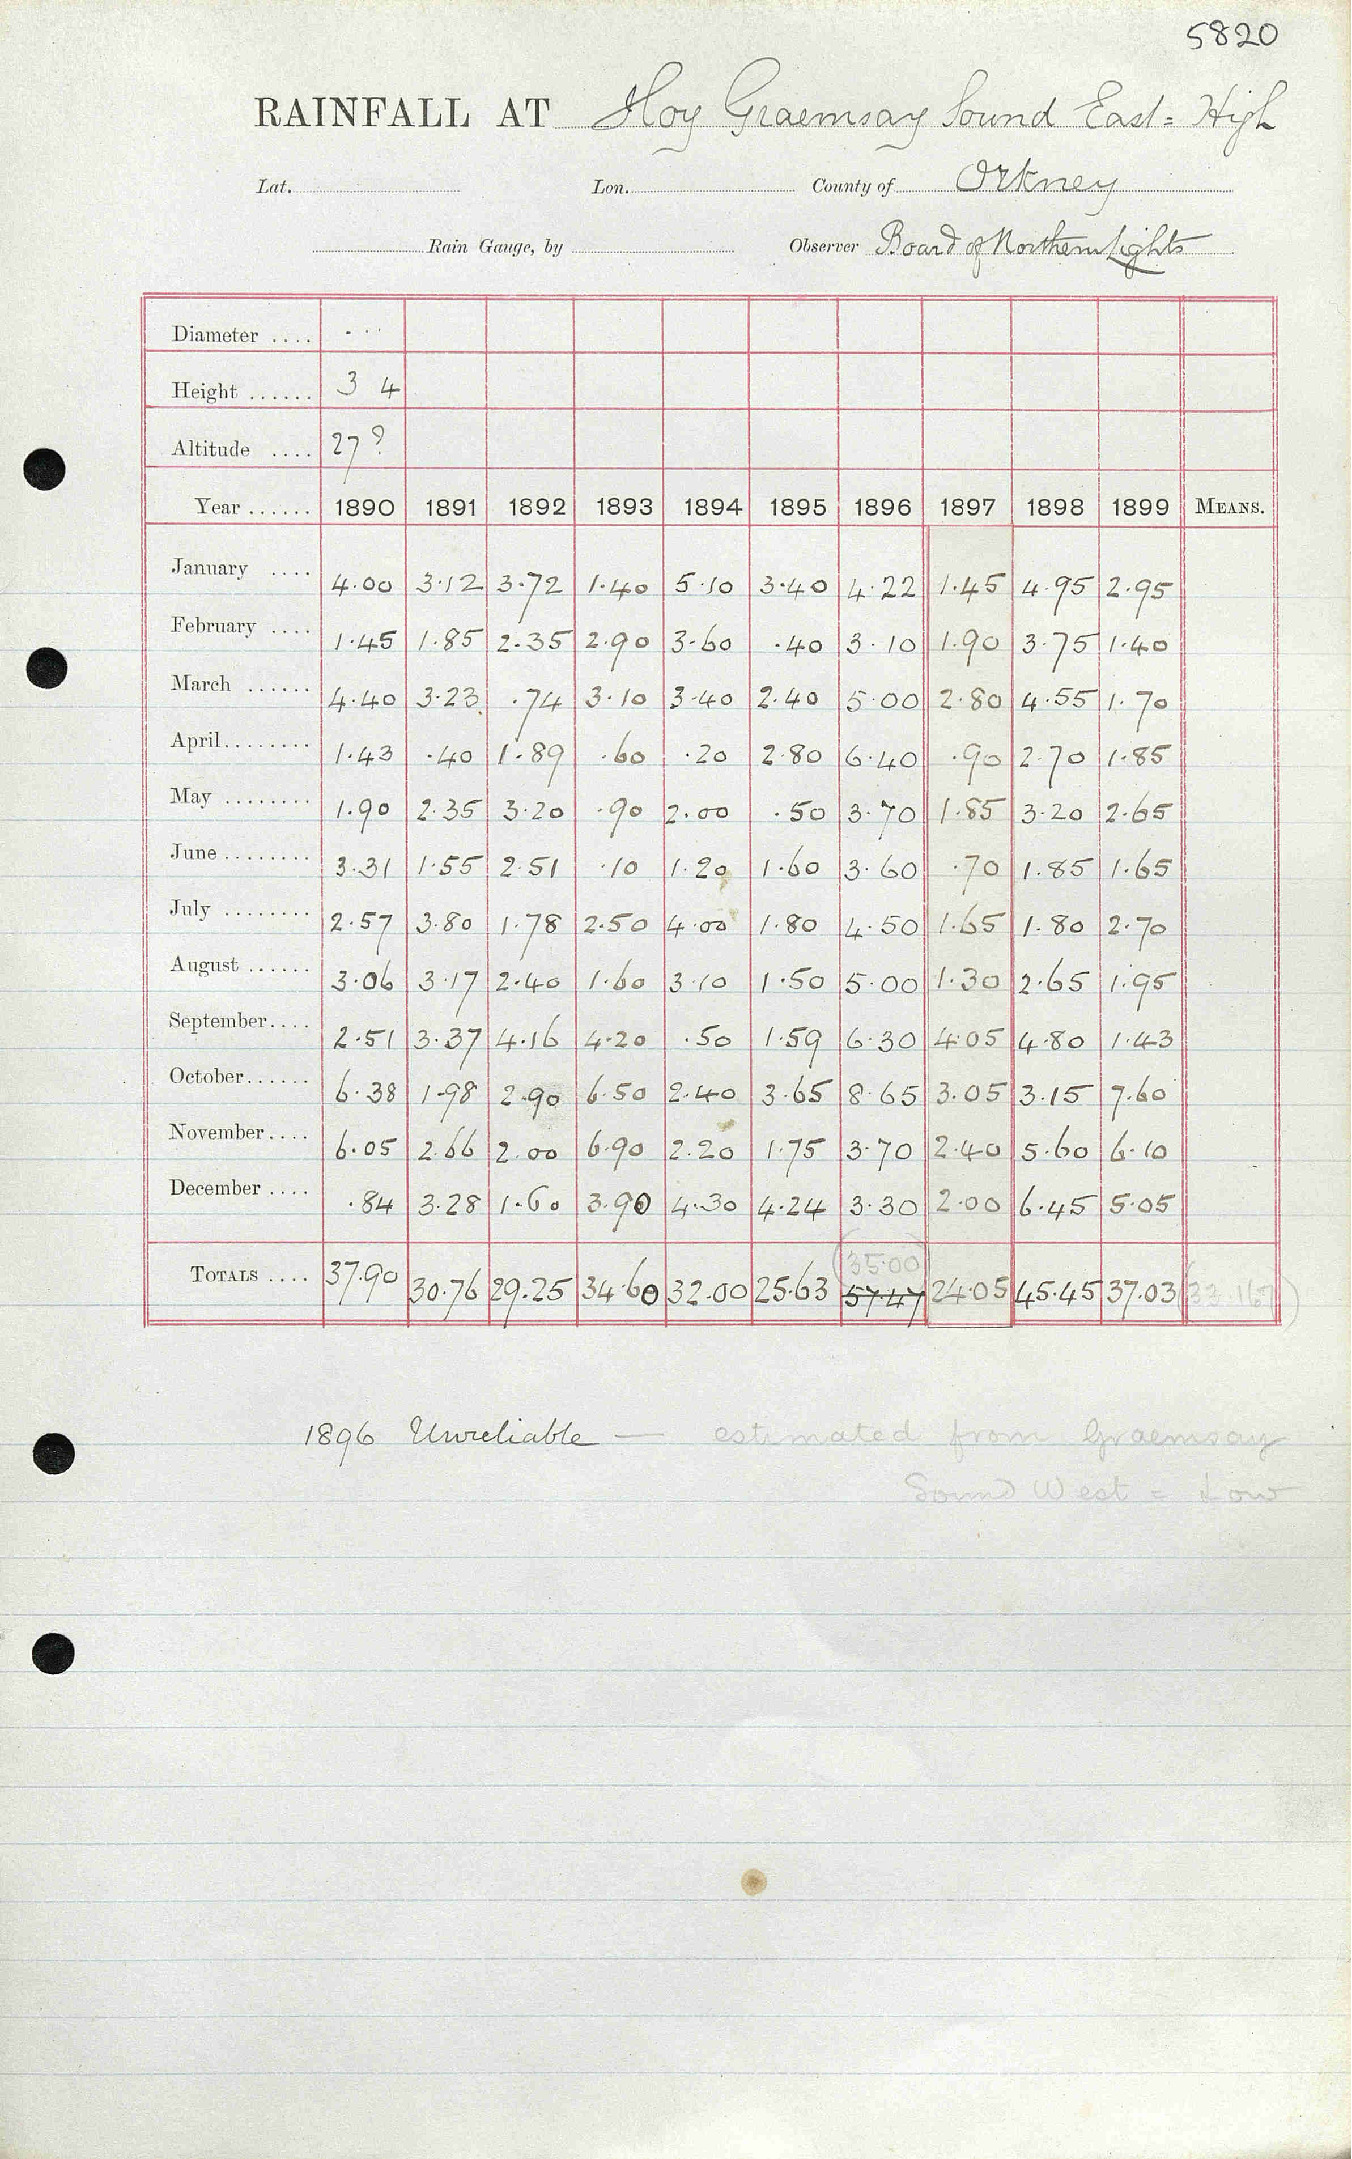 5820
RAINFALL AT Hoy Graemsay Sound East = High
Lat. Lon. County of Orkney
Rain Gauge, by Observer Board of Northern Lights
Diameter .... . . .
Height ...... 3 4
Altitude .... 27 ?
Year ...... 1890 1891 1892 1893 1894 1895 1896 1897 1898 1899 MEANS.
January .... 4.00 3.12 3.72 1.40 5.10 3.40 4.22 1.45 4.95 2.95
February .... 1.45 1.85 2.35 2.90 3.60 .40 3.10 1.90 3.75 1.40
March ...... 4.40 3.23 .74 3.10 3.40 2.40 5.00 2.80 4.55 1.70
April........ 1.43 .40 1.89 .60 .20 2.80 6.40 .90 2.70 1.85
May ........ 1.90 2.35 3.20 .90 2.00 .50 3.70 1.85 3.20 2.65
June ........ 3.31 1.55 2.51 .10 1.20 1.60 3.60 .70 1.85 1.65
July ........ 2.57 3.80 1.78 2.50 4.00 1.80 4.50 1.65 1.80 2.70
August ...... 3.06 3.17 2.40 1.60 3.10 1.50 5.00 1.30 2.65 1.95
September.... 2.51 3.37 4.16 4.20 .50 1.59 6.30 4.05 4.80 1.43
October...... 6.38 1.98 2.90 6.50 2.40 3.65 8.65 3.05 3.15 7.60
November.... 6.05 2.66 2.00 6.90 2.20 1.75 3.70 2.40 5.60 6.10
December .... .84 3.28 1.60 3.90 4.30 4.24 3.30 2.00 6.45 5.05
(35.00)
TOTALS .... 37.90 30.76 29.25 34.60 32.00 25.63 57.47 24.05 45.45 37.03 (33.167)
1896 Unreliable — estimated from Graemsay
Sound West = Low